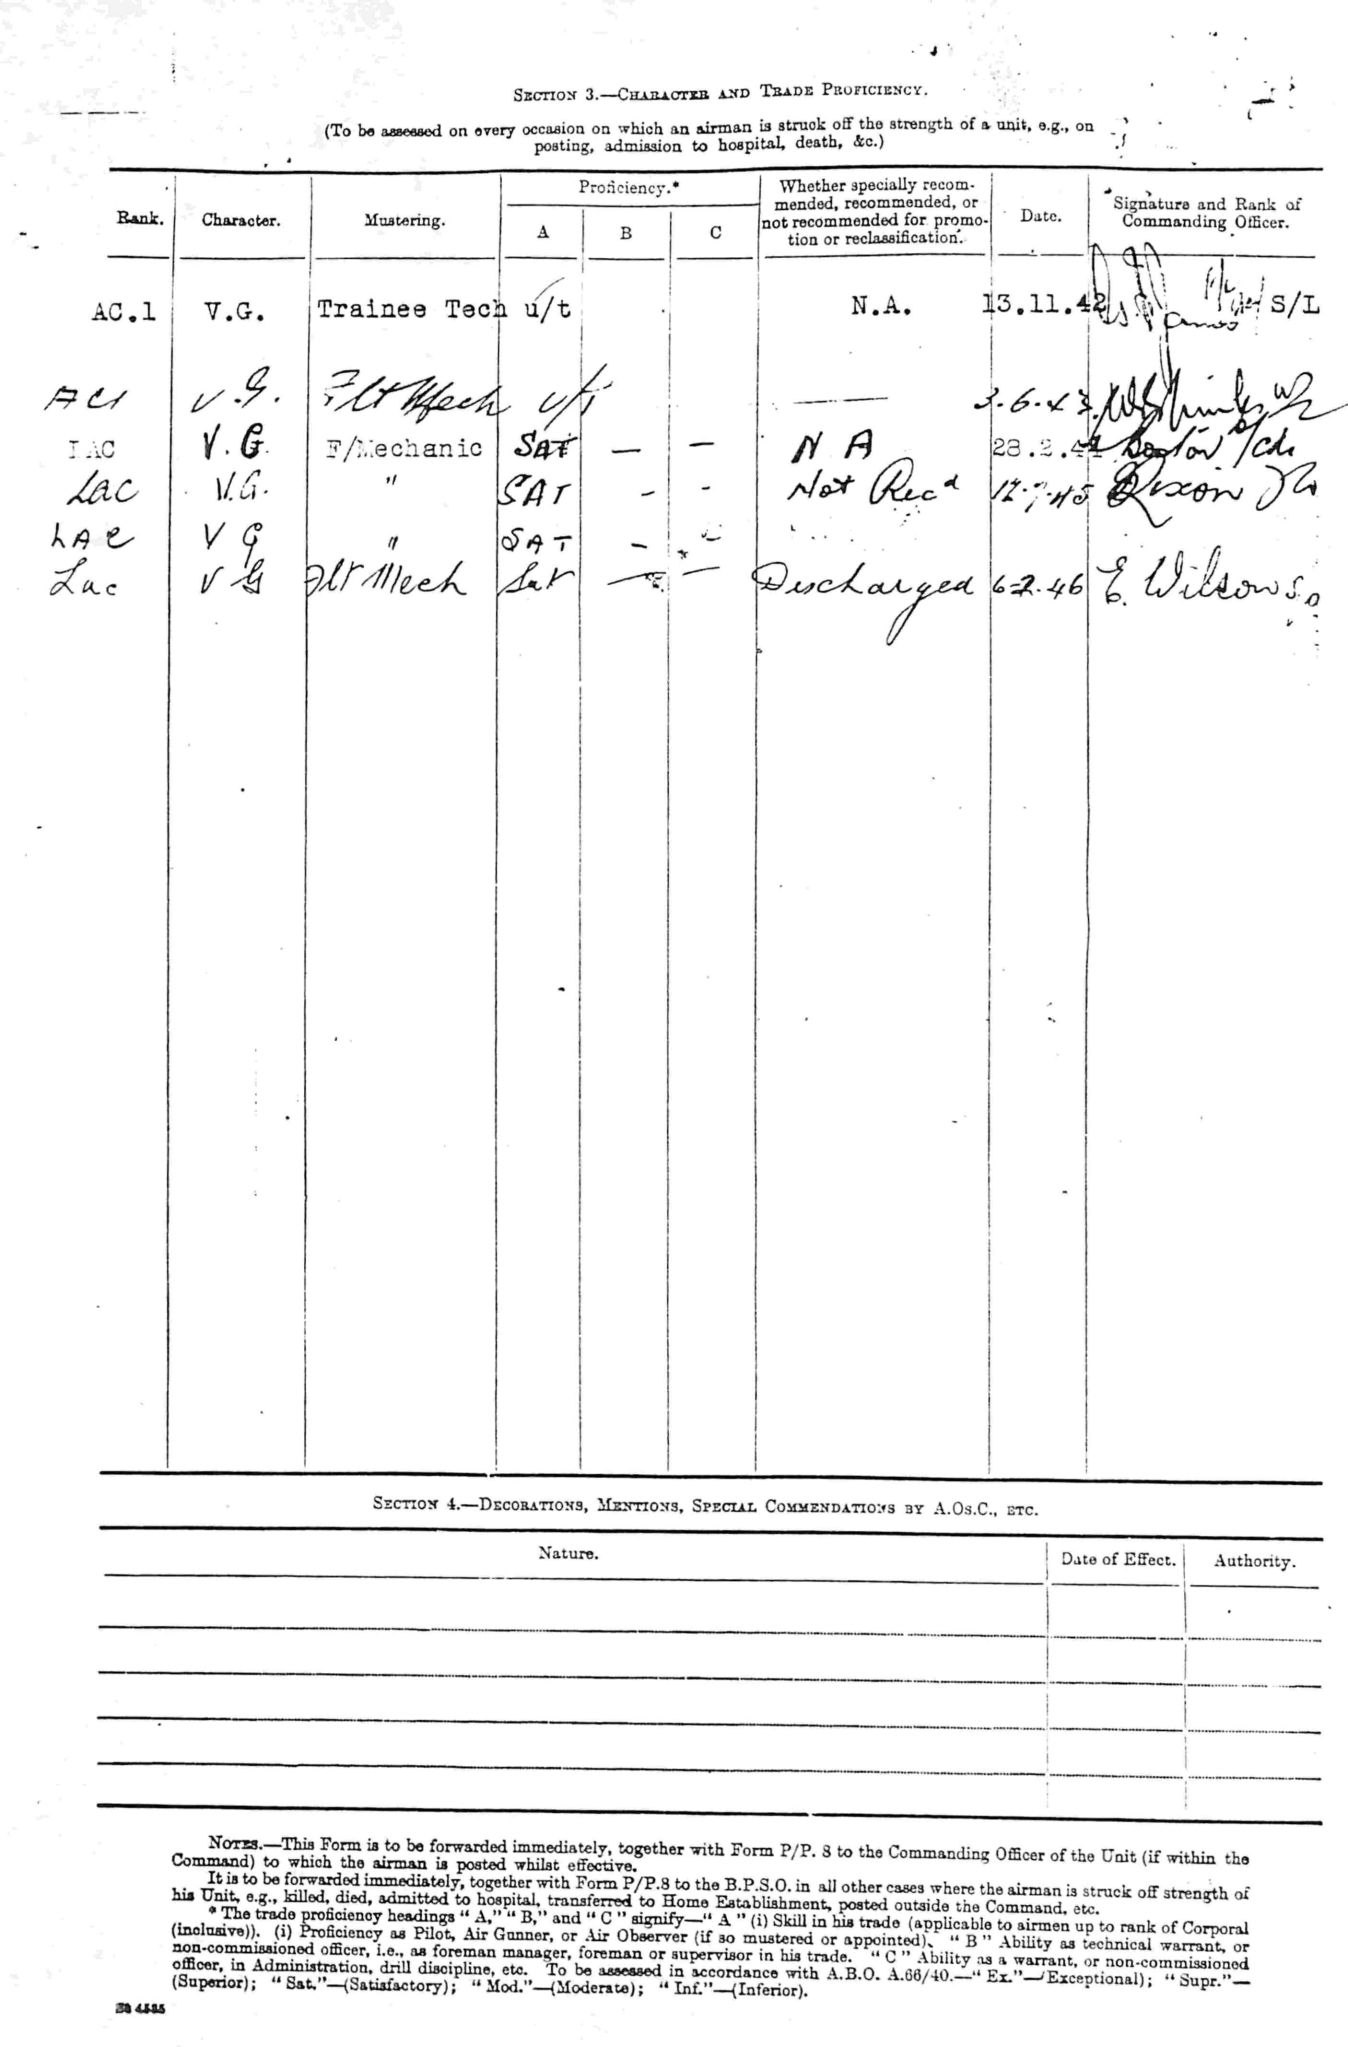 SECTION 3.—CHARACTER AND TRADE PROFICIENCY.
(To be assessed on every occasion on which an airman is struck off the strength of a unit, e.g., on
posting, admission to hospital, death, &c.)
Rank. Character. Mustering. Proficiency.* A B C Whether specially recom-
mended, recommended, or
not recommended for promo-
tion or reclassification. Date. Signature and Rank of
Commanding Officer.
AC.1 V.G. Trainee Tech u/t N.A. 13.11.42 S/L
AC1 V.G. Flt Mech u/t —— 3.6.43
LAC V.G. F/Mechanic SAT — — N A 28.2.44
Lac V.G. " SAT - - Not Recd
LAC V G " SAT - -
Lac V G Flt Mech Sat — — Discharged 46 E. Wilson
SECTION 4.—DECORATIONS, MENTIONS, SPECIAL COMMENDATIONS BY A.OS.C., ETC.
Nature. Date of Effect. Authority.
NOTES.—This Form is to be forwarded immediately, together with Form P/P. 8 to the Commanding Officer of the Unit (if within the
Command) to which the airman is posted whilst effective.
It is to be forwarded immediately, together with Form P/P.8 to the B.P.S.O. in all other cases where the airman is struck off strength of
his Unit, e.g., killed, died, admitted to hospital, transferred to Home Establishment, posted outside the Command, etc.
* The trade proficiency headings " A," " B," and " C " signify—" A " (i) Skill in his trade (applicable to airmen up to rank of Corporal
(inclusive)). (i) Proficiency as Pilot, Air Gunner, or Air Observer (if so mustered or appointed). " B " Ability as technical warrant, or
non-commissioned officer, i.e., as foreman manager, foreman or supervisor in his trade. " C " Ability as a warrant, or non-commissioned
officer, in Administration, drill discipline, etc. To be assessed in accordance with A.B.O. A.66/40.—" Ex."—(Exceptional); " Supr."—
(Superior); " Sat."—(Satisfactory); " Mod."—(Moderate); " Inf."—(Inferior).